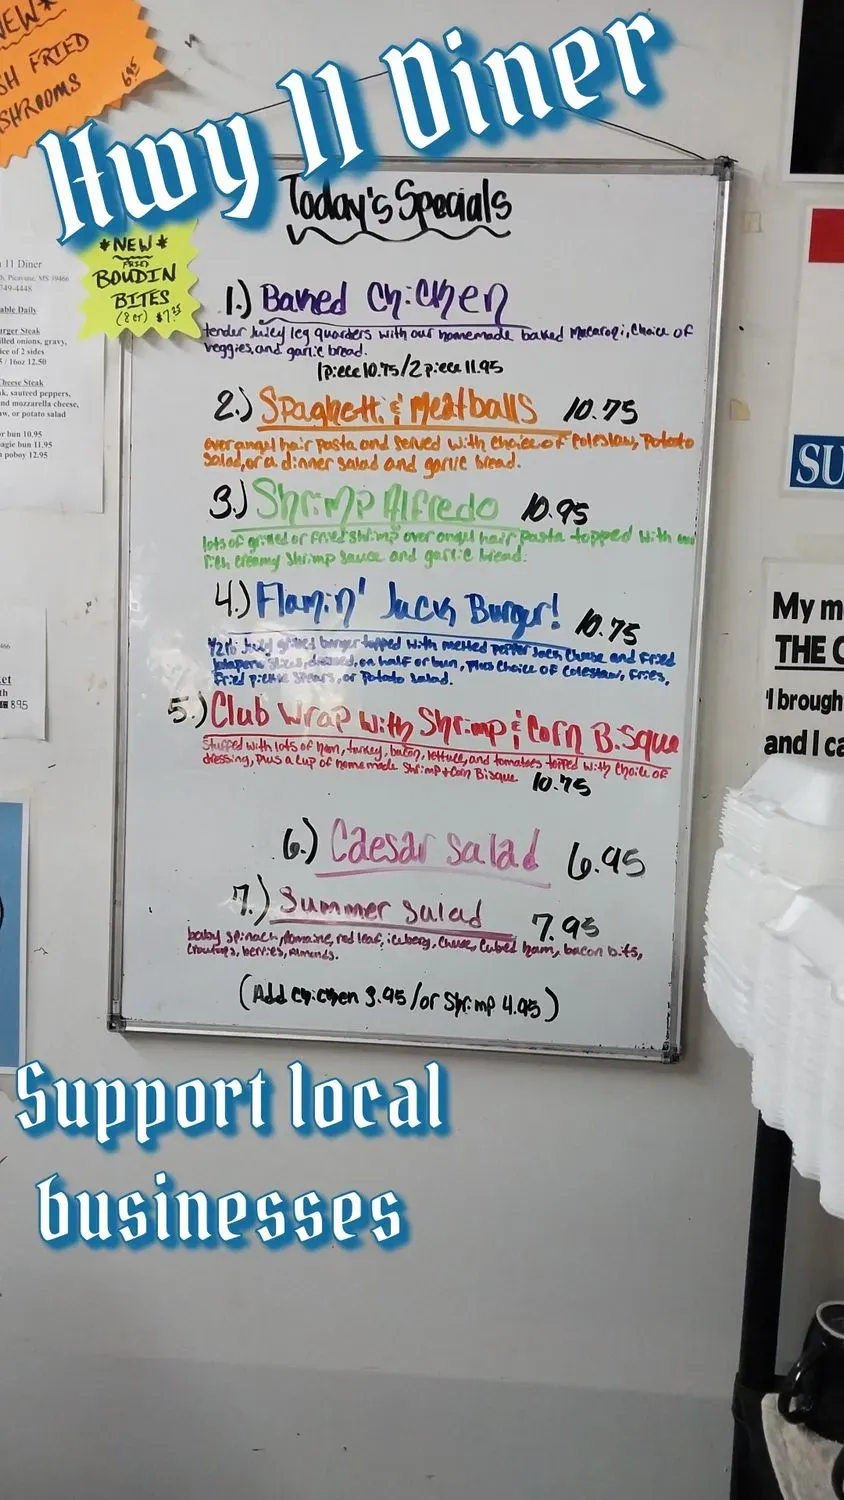 NEW*
SH FRIED
SHROOMS
6.95
Hwy 11 Diner
Today's Specials
*NEW*
FRIED
BOUDIN
BITES
(8 ct) $7.25
11 Diner
Picayune, MS 39466
749-4448
able Daily
urger Steak
illed onions, gravy,
ice of 2 sides
/ 16oz 12.50
Cheese Steak
k, sauteed peppers,
nd mozzarella cheese,
w, or potato salad
or bun 10.95
agie bun 11.95
poboy 12.95
1.) Baked Chicken
tender juicy leg quarters with our homemade baked Macaroni, choice of
veggies, and garlic bread.
1 piece 10.75/2 piece 11.95
2.) Spaghetti & Meatballs 10.75
over angel hair pasta and served with choice of Coleslaw, Potato
Salad, or a dinner salad and garlic bread.
3.) Shrimp Alfredo 10.95
lots of grilled or fried shrimp over angel hair pasta topped with our
rich creamy shrimp sauce and garlic bread.
4.) Flamin' Jack Burger! 10.75
1/2 lb juicy grilled burger topped with melted pepper jack cheese and fried
jalapeno slices, dressed, on half or bun, plus choice of coleslaw, fries,
fried pickle spears, or potato salad.
5.) Club Wrap with Shrimp & Corn Bisque
stuffed with lots of ham, turkey, bacon, lettuce, and tomatoes topped with choice of
dressing, plus a cup of homemade Shrimp + Corn Bisque 10.75
6.) Caesar salad 6.95
7.) Summer salad 7.95
baby spinach, romaine, red leaf, iceberg, cheese, cubed ham, bacon bits,
croutons, berries, almonds.
(Add chicken 3.95/or Shrimp 4.95)
ket
th
8.95
SU
My m
THE C
I brough
and I ca
Support local
businesses